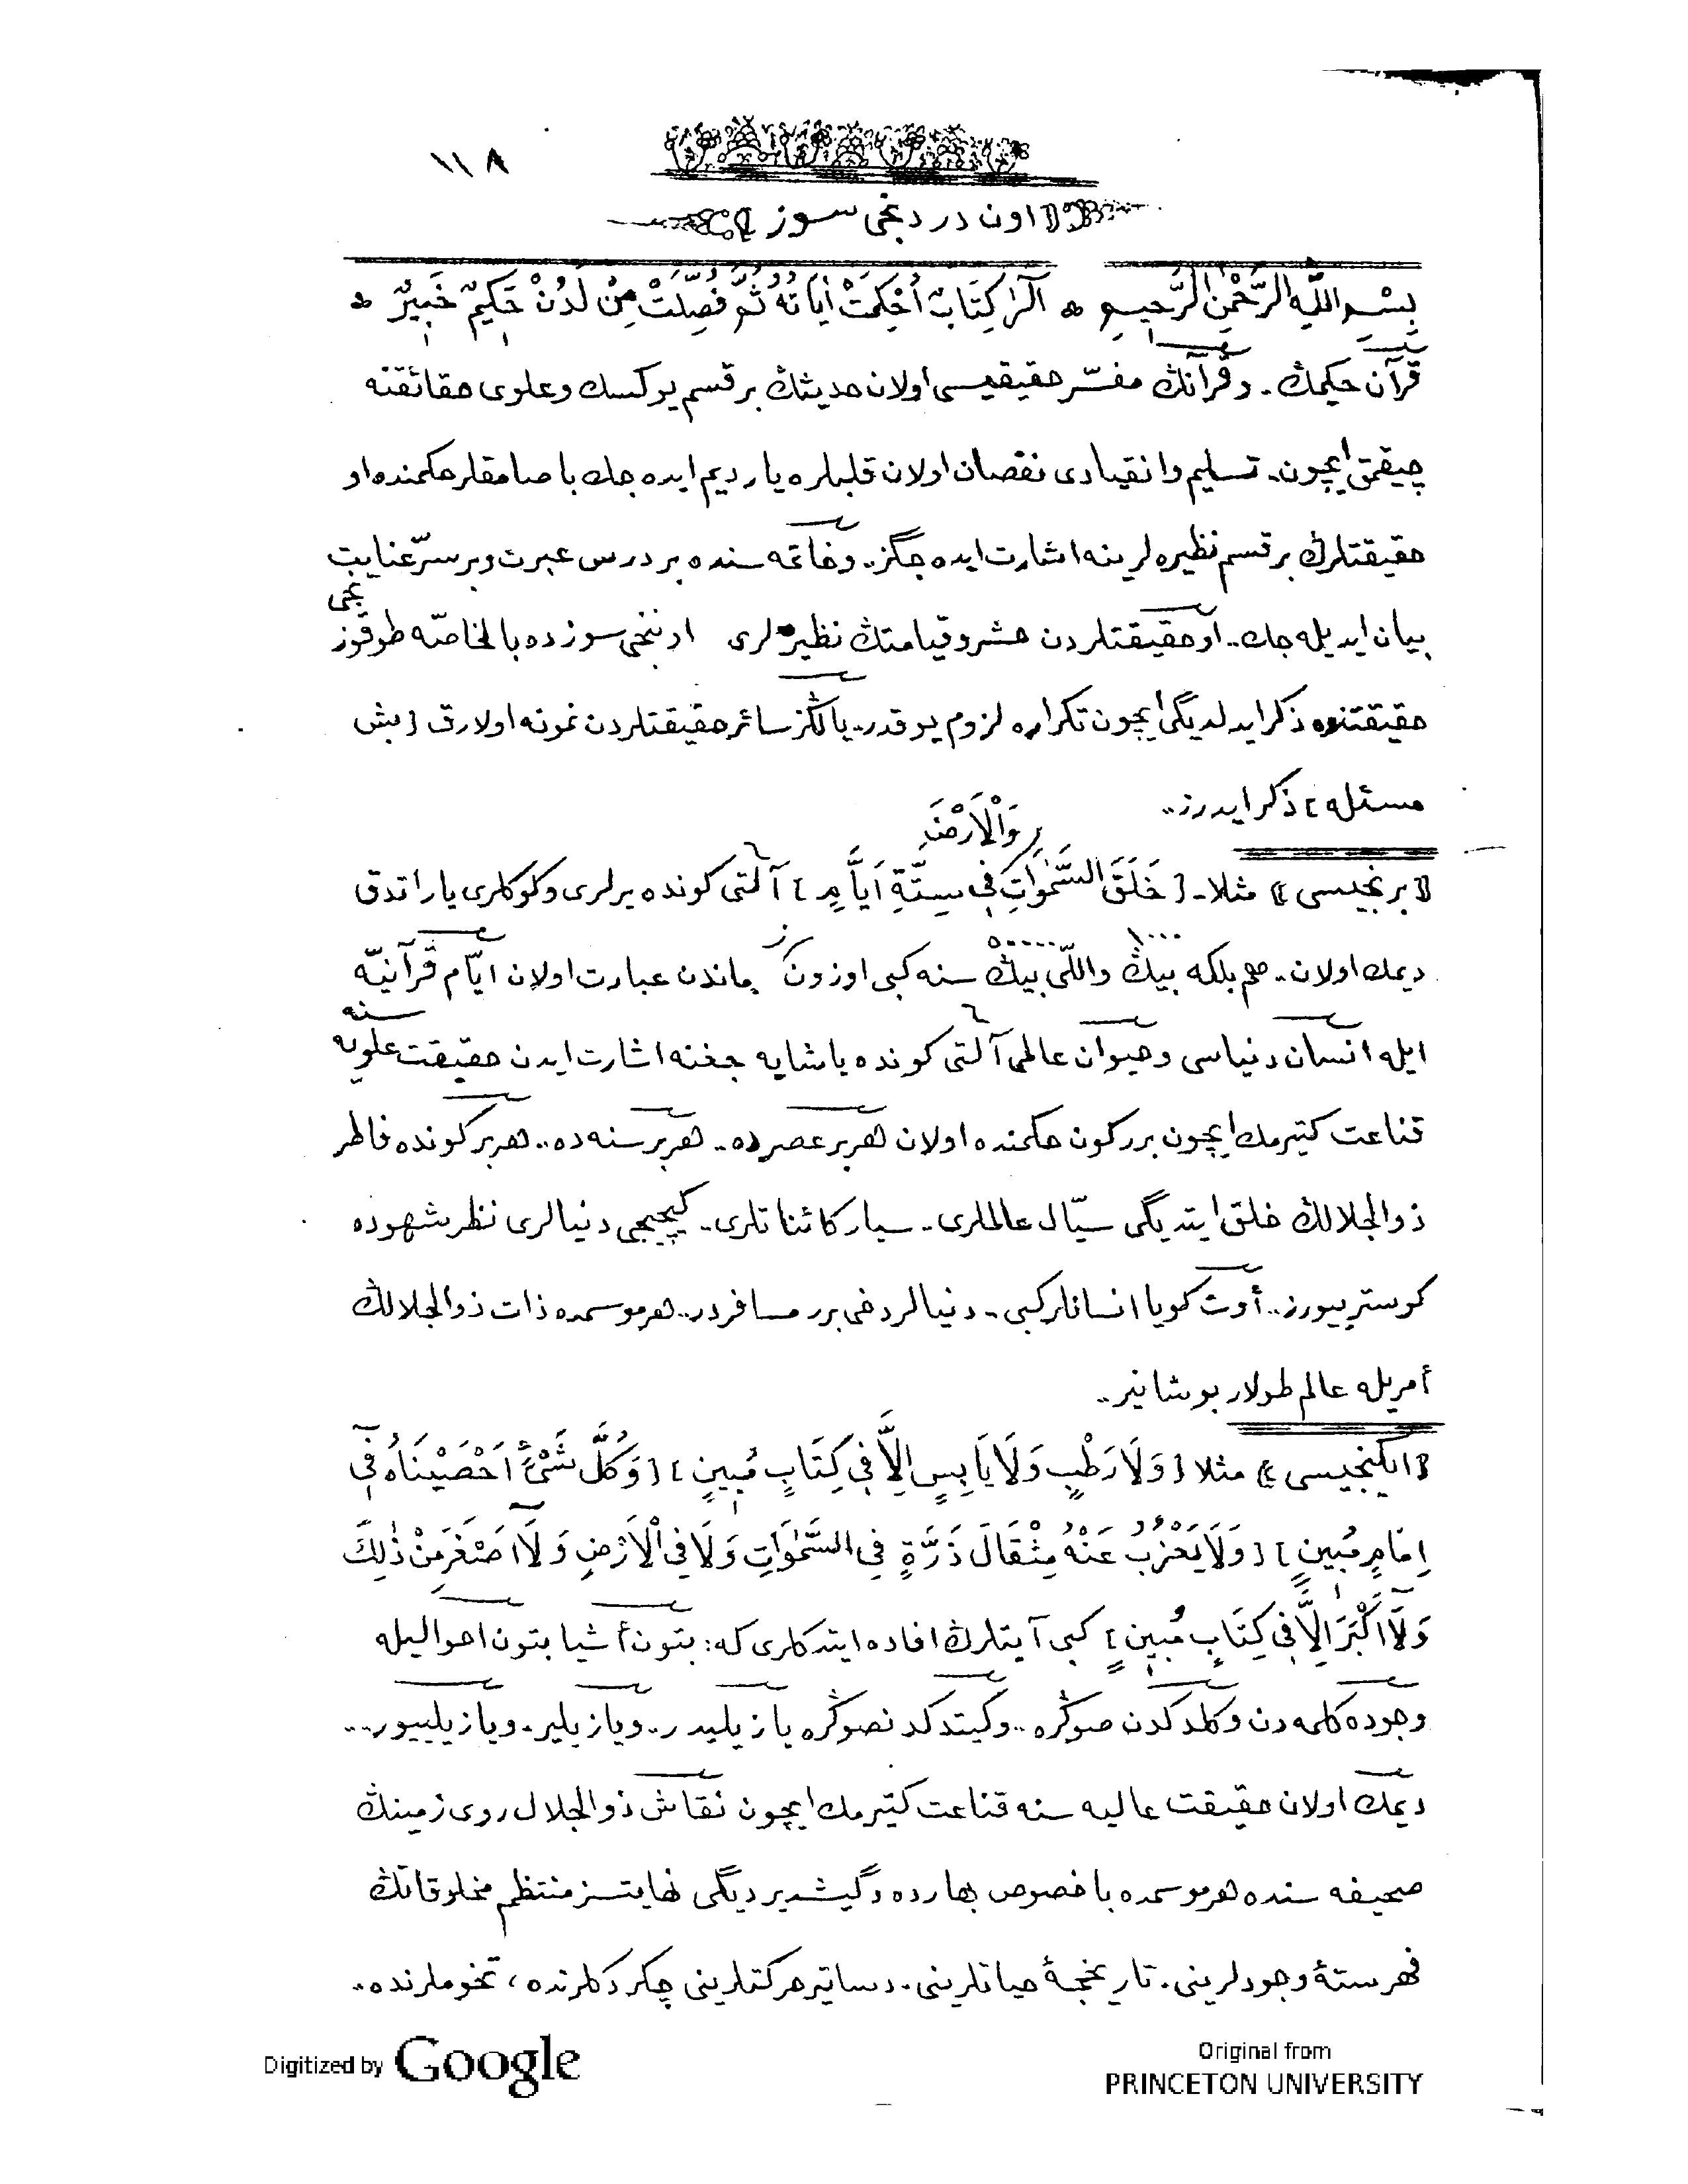 ١١٨
اون دردنجی سوز
بِسْمِ اللّٰهِ الرَّحْمٰنِ الرَّحِيمِ * آلرٰ كِتَابٌ اُحْكِمَتْ اٰيَاتُهُ ثُمَّ فُصِّلَتْ مِنْ لَدُنْ حَكِيمٍ خَبِيرٍ *
قرآن حكيمڭ. وقرآنڭ مفسّر حقيقيسی اولان حديثڭ بر قسم يوكسك وعلوی حقائقنه
چيقمق ايچون. تسليم وانقيادی نقصان اولان قلبلره ياردیم ايده جك باصامقلر حكمنده او
حقيقتلرڭ بر قسم نظيره لرينه اشارت ايده جگز.. وخاتمه سنده بر درس عبرت وبر سرّ عنايت
بيان ايديله جك.. او حقيقتلردن حشر وقيامتڭ نظيره لری اوننجی سوزده بالخاصّه طوقوزنجی
حقيقتنده ذكر ايدلديگی ايچون تكراره لزوم يوقدر.. يالڭز سائر حقيقتلردن نمونه اولارق [بش
مسئله] ذكر ايدرز..
﴿برنجيسی﴾ مثلا. [خَلَقَ السَّمٰوَاتِ وَالْاَرْضَ فِى سِتَّةِ اَيَّامٍ] آلتی كونده يرلری وكوكلری ياراتدق
ديمك اولان.. هم بلكه بيڭ ١٠٠٠ واللی بيڭ ٥٠٠٠٠ سنه كبی اوزون زماندن عبارت اولان ايّام قرآنيّه
ايله انسان دنياسی وحيوان عالمی آلتی كونده ياشايه جغنه اشارت ايدن حقيقت علويه سنه
قناعت كتيرمك ايچون برر كون حكمنده اولان هر بر عصرده.. هر بر سنه ده.. هر بر كونده فاطر
ذوالجلالڭ خلق ايتديگی سيّال عالملری. سيار كائناتلری. كيچيجی دنيالری نظر شهوده
كوستريیورز.. أوت كويا انسانلر كبی. دنيالر دخی برر مسافردر.. هر موسمده ذات ذوالجلالڭ
أمريله عالم طولار بوشانير..
﴿ايكنجيسی﴾ مثلا [وَلَا رَطْبٍ وَلَا يَابِسٍ اِلَّا فِى كِتَابٍ مُبِينٍ] [وَكُلَّ شَىْءٍ اَحْصَيْنَاهُ فِٓى
اِمَامٍ مُبِينٍ] [وَلَا يَعْزُبُ عَنْهُ مِثْقَالَ ذَرَّةٍ فِى السَّمٰوَاتِ وَلَا فِى الْاَرْضِ وَلَٓا اَصْغَرَ مِنْ ذٰلِكَ
وَلَٓا اَكْبَرَ اِلَّا فِى كِتَابٍ مُبِينٍ] كبی آيتلرڭ افاده ايتدكلری كه: بتون أشيا بتون احواليله
وجوده كلمه دن وكلدكدن صوڭره.. وكيتدكد نصوڭره يازيليدر.. ويازيلير. ويازيلييور...
ديمك اولان حقيقت عاليه سنه قناعت كتيرمك ايچون نقاش ذوالجلال روی زمينڭ
صحيفه سنده هر موسمده باخصوص بهارده دگيشديرديگی نهايتسز منتظم مخلوقاتڭ
فهرستهٔ وجودلرينی. تاريخچهٔ حياتلرينی. دساتير حركتلرينی چكردكلرنده، تخوملرنده..
Digitized by Google
Original from
PRINCETON UNIVERSITY